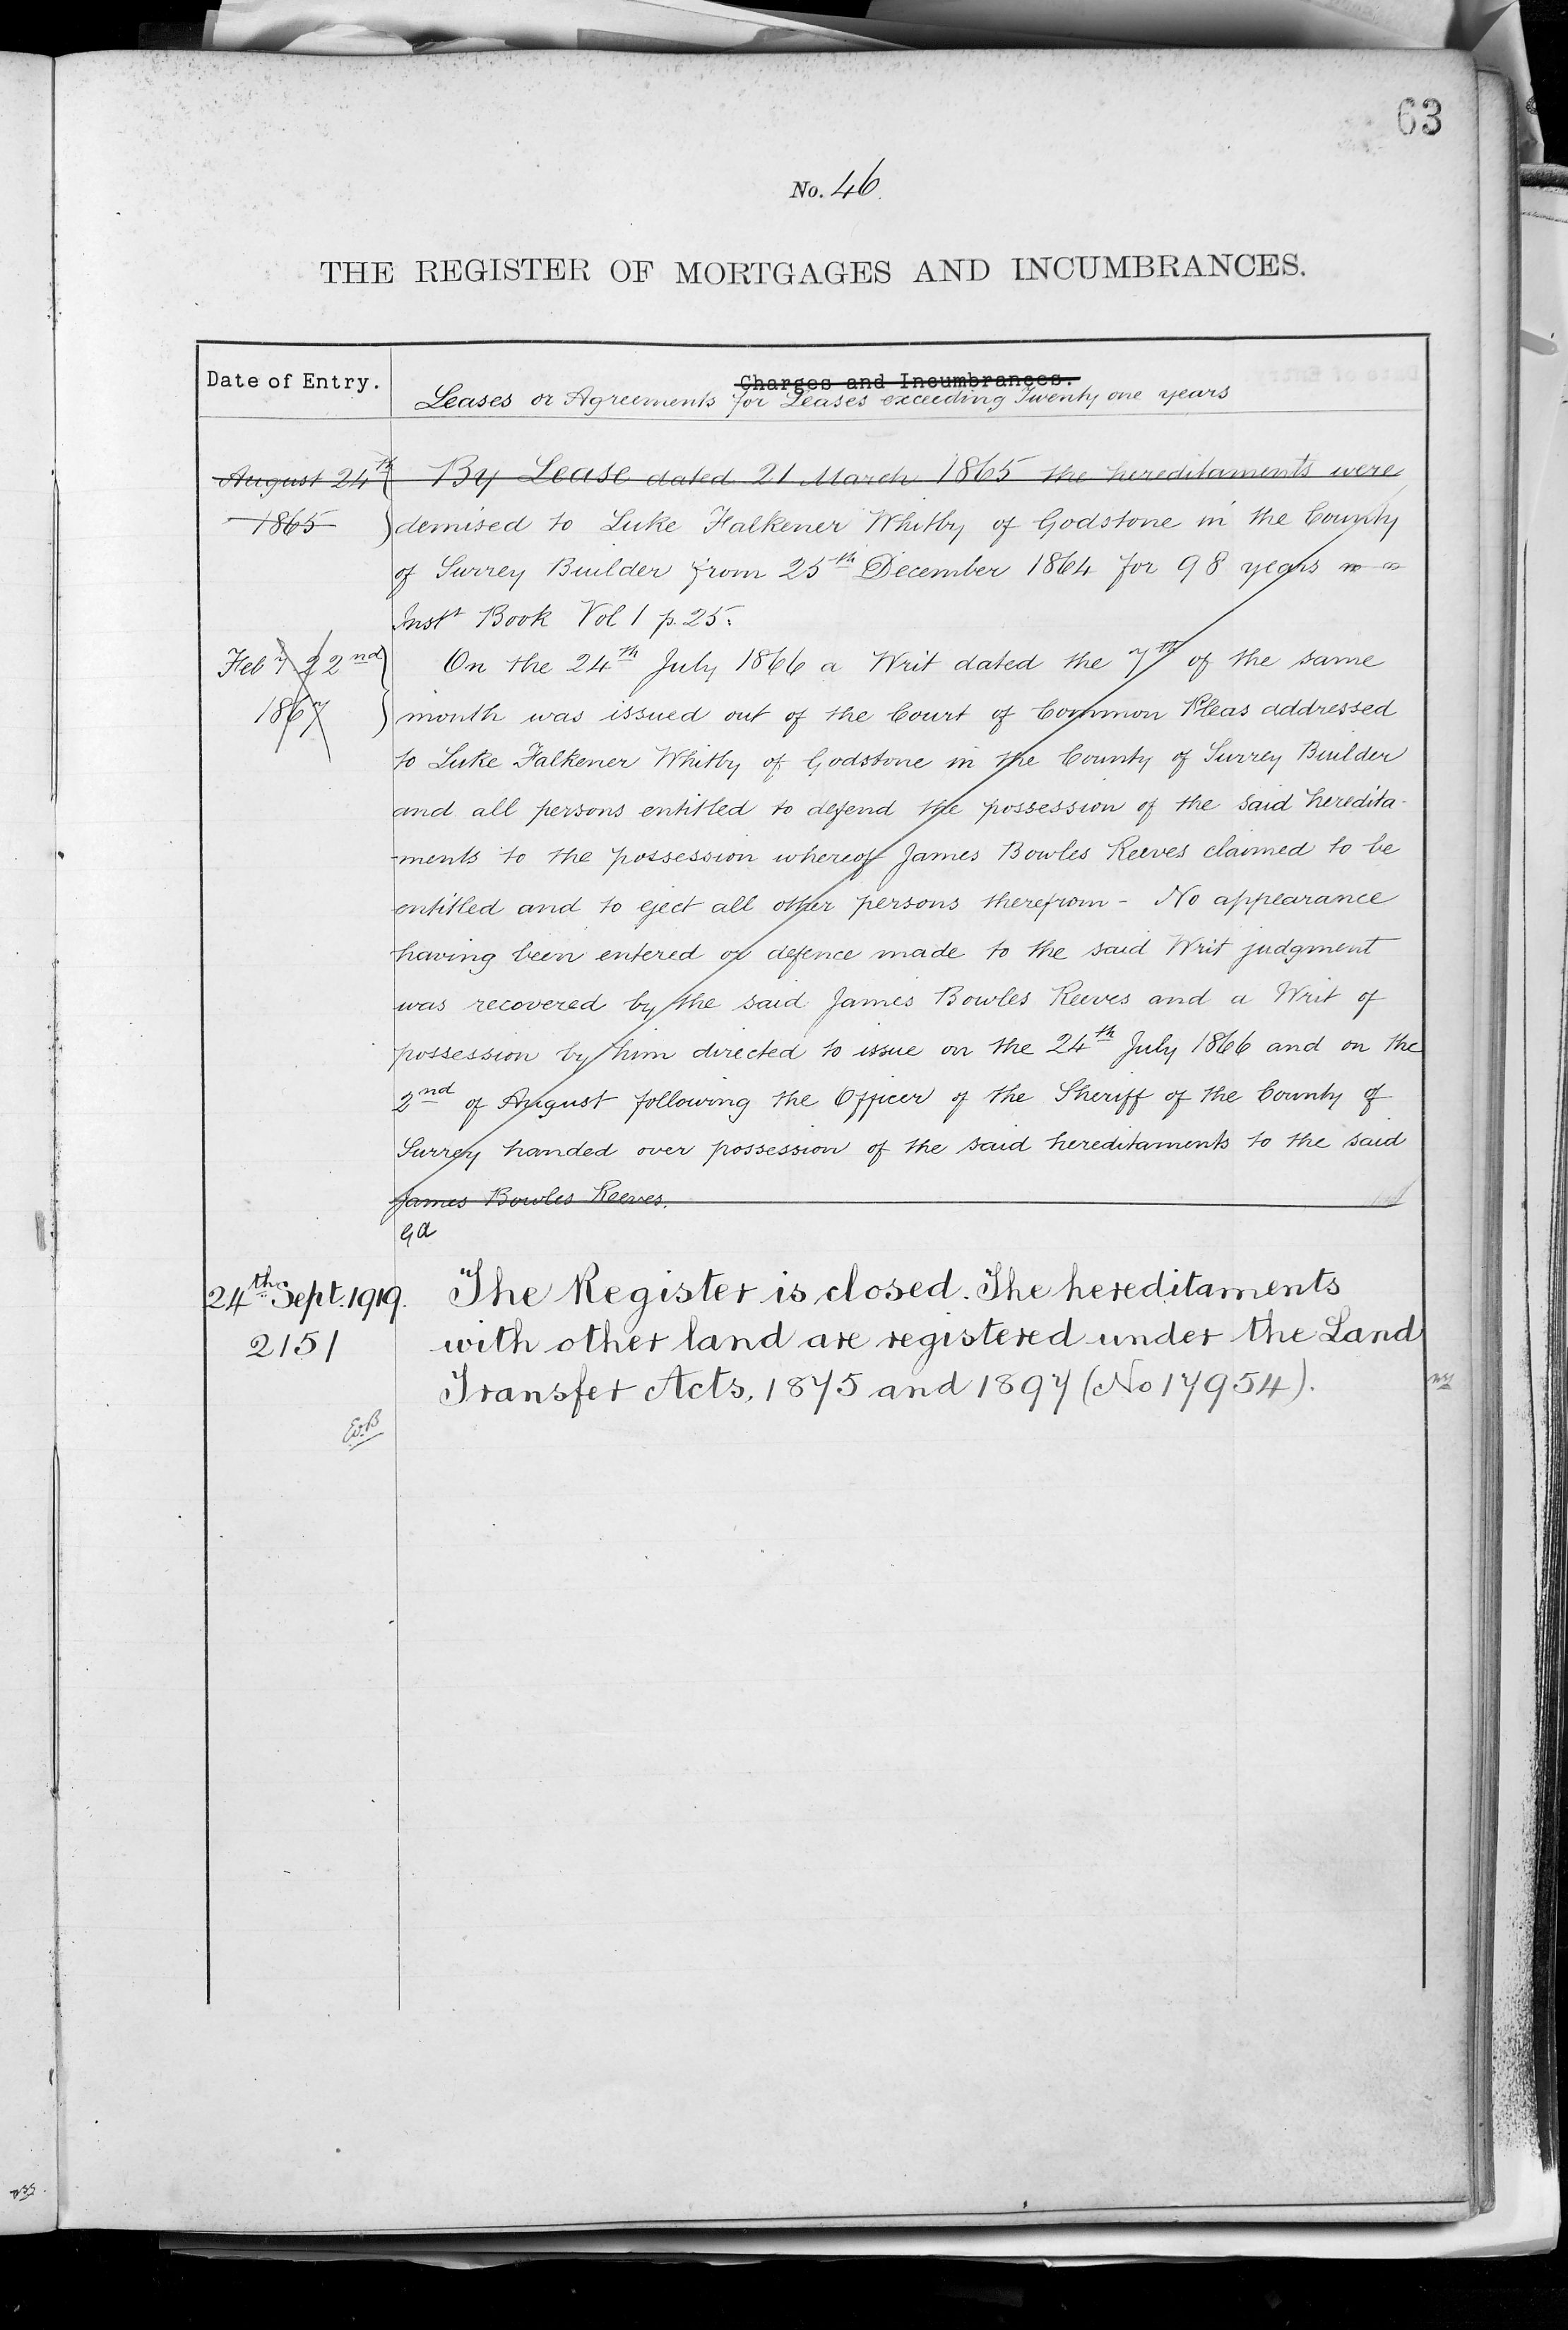 63
No. 46.
THE REGISTER OF MORTGAGES AND INCUMBRANCES.
Date of Entry.
Charges and Incumbrances.
Leases or Agreements for Leases exceeding Twenty one years
August 24th By Lease dated 21 March 1865 the hereditaments were
1865 demised to Luke Falkener Whitby of Godstone in the County
of Surrey Builder from 25th December 1864 for 98 years
Inst Book Vol 1 p. 25.
Feby 22nd On the 24th July 1866 a Writ dated the 7th of the same
1867 month was issued out of the Court of Common Pleas addressed
to Luke Falkener Whitby of Godstone in the County of Surrey Builder
and all persons entitled to defend the possession of the said heredita-
-ments to the possession whereof James Bowles Reeves claimed to be
entitled and to eject all other persons therefrom - No appearance
having been entered or defence made to the said Writ judgment
was recovered by the said James Bowles Reeves and a Writ of
possession by him directed to issue on the 24th July 1866 and on the
2nd of August following the Officer of the Sheriff of the County of
Surrey handed over possession of the said hereditaments to the said
James Bowles Reeves.
24th Sept. 1919. The Register is closed. The hereditaments
2151 with other land are registered under the Land
Transfer Acts, 1875 and 1897 (No 17954).